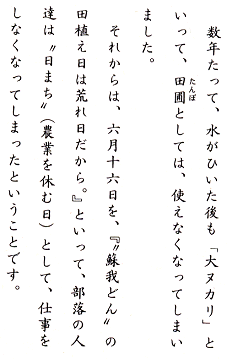 数年たって、水がひいた後も「大ヌカリ」と
いって、田圃としては、使えなくなってしまい
ました。
それからは、六月十六日を、『〝蘇我どん〟の
田植え日は荒れ日だから。』といって、部落の人
達は〝日まち〟（農業を休む日）として、仕事を
しなくなってしまったということです。
たんぼ